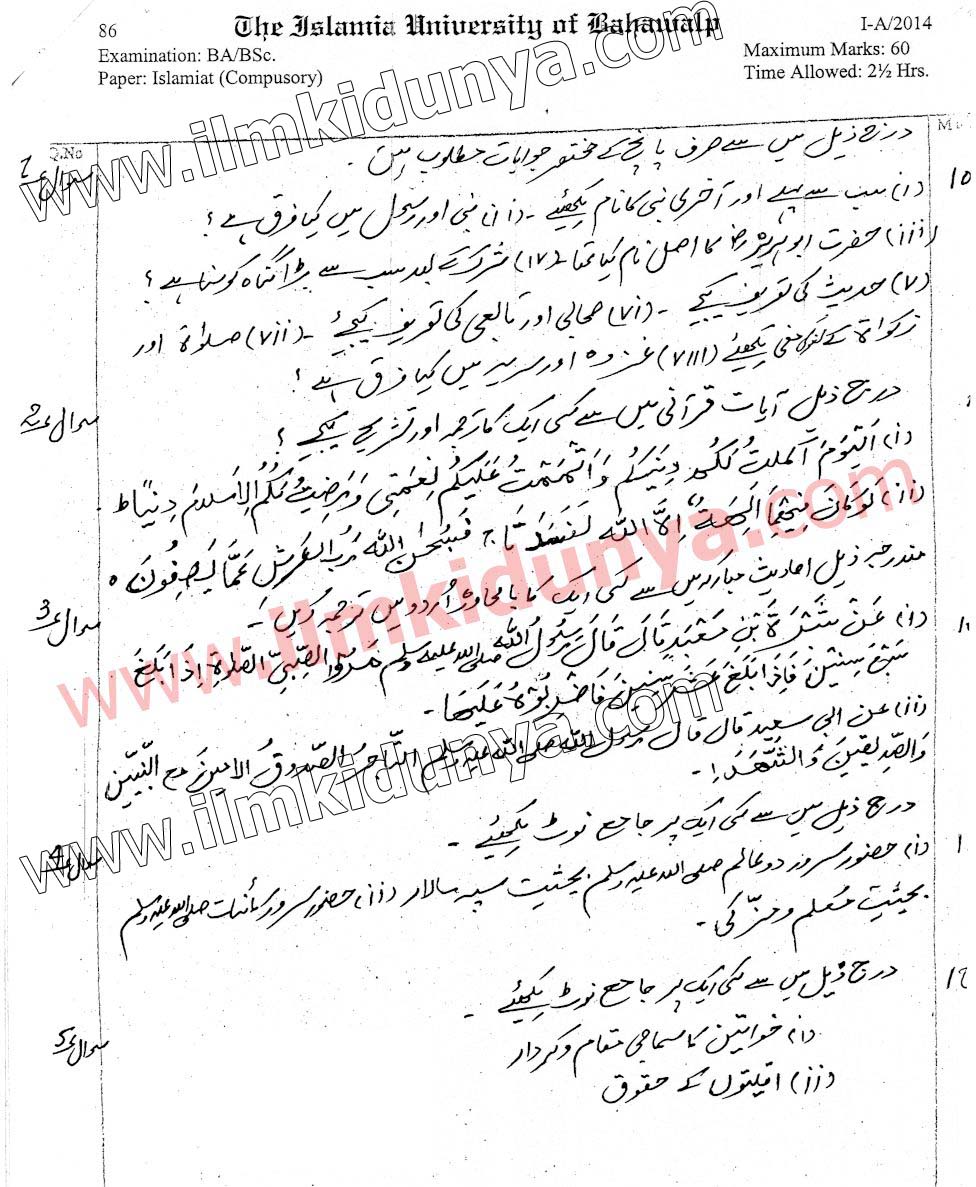 86
The Islamia University of Bahawalp
I-A/2014
Examination: BA/BSc.
Maximum Marks: 60
Paper: Islamiat (Compusory)
Time Allowed: 2½ Hrs.
Q.No
درج ذیل میں سے صرف پانچ کے مختصر جوابات مطلوب ہیں۔
(i) سب سے پہلے اور آخری نبی کا نام لکھیئے ۔ (ii) نبی اور رسول میں کیا فرق ہے؟
(iii) حضرت ابوہریرہؓ کا اصل نام کیا تھا (iv) شرک کے بعد سب سے بڑا گناہ کونسا ہے؟
(v) حدیث کی تعریف کیجیے ۔ (vi) صحابی اور تابعی کی تعریف کیجئے ۔ (vii) صلوٰۃ اور
زکواۃ کے لغوی معنی لکھیئے (viii) غزوہ اور سریہ میں کیا فرق ہے؟
سوال 2
درج ذیل آیات قرآنی میں سے کسی ایک کا ترجمہ اور تشریح کیجیے؟
(i) اَلْیَوْمَ اَکملتُ لَکُمْ دِیْنَکُم وَاَتْمَمْتُ عَلَیْکُم نِعْمَتِی وَرَضِیْتُ لَکُمُ الْاِسْلَامَ دِیْنًا ط
(ii) لَوْ کَانَ فِیْهِمَا اٰلِهَةٌ اِلَّا اللّٰه لَفَسَدَتَا ج فَسُبْحٰنَ اللّٰه رَبِّ العَرْشِ عَمَّا یَصِفُوْنَ ہ
سوال 3
مندرجہ ذیل احادیث مبارکہ میں سے کسی ایک کا بامحاورہ اُردو میں ترجمہ کریں۔
(i) عَنْ سَبْرَةَ بْنِ مَعْبَدٍ قَالَ قَالَ رَسُوْلُ اللّٰه صلی اللہ علیہ وسلم مُرُوا الصَّبِیَّ الصَّلٰوۃِ اِذَا بَلَغَ
سَبْعَ سِنِیْنَ فَاِذَا بَلَغَ عَشْرَ سِنِیْنَ فَاضْرِبُوْهُ عَلَیْهَا ۔
(ii) عن ابی سعید قال قال رسول اللّٰه صلی اللہ علیہ وسلم التَّاجِرُ الصَّدُوْقُ الامین مع النَّبِیّیْن
وَالصِّدِیقِیْنَ وَالشُّهَدَا ۔
سوال 4
درج ذیل میں سے کسی ایک پر جامع نوٹ لکھیئے ۔
(i) حضور سرور دو عالم صلی اللہ علیہ وسلم بحیثیت سپہ سالار (ii) حضور سرور کائنات صلی اللہ علیہ وسلم
بحیثیت معلم و مزّکی ۔
سوال 5
درج ذیل میں سے کسی ایک پر جامع نوٹ لکھیئے ۔
(i) خواتین کا سماجی مقام و کردار
(ii) اقلیتوں کے حقوق
www.ilmkidunya.com
www.ilmkidunya.com
www.ilmkidunya.com